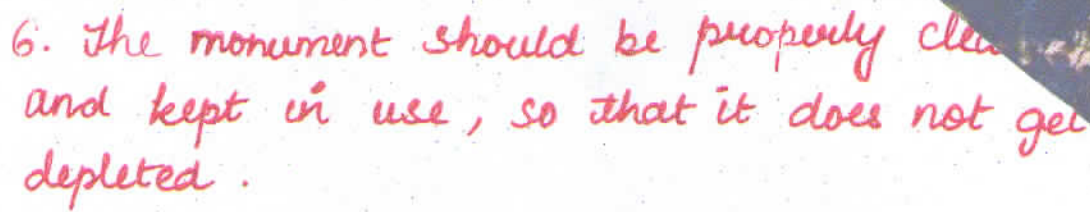 6. The monument should be properly
and kept in use, so that it does not
depleted.